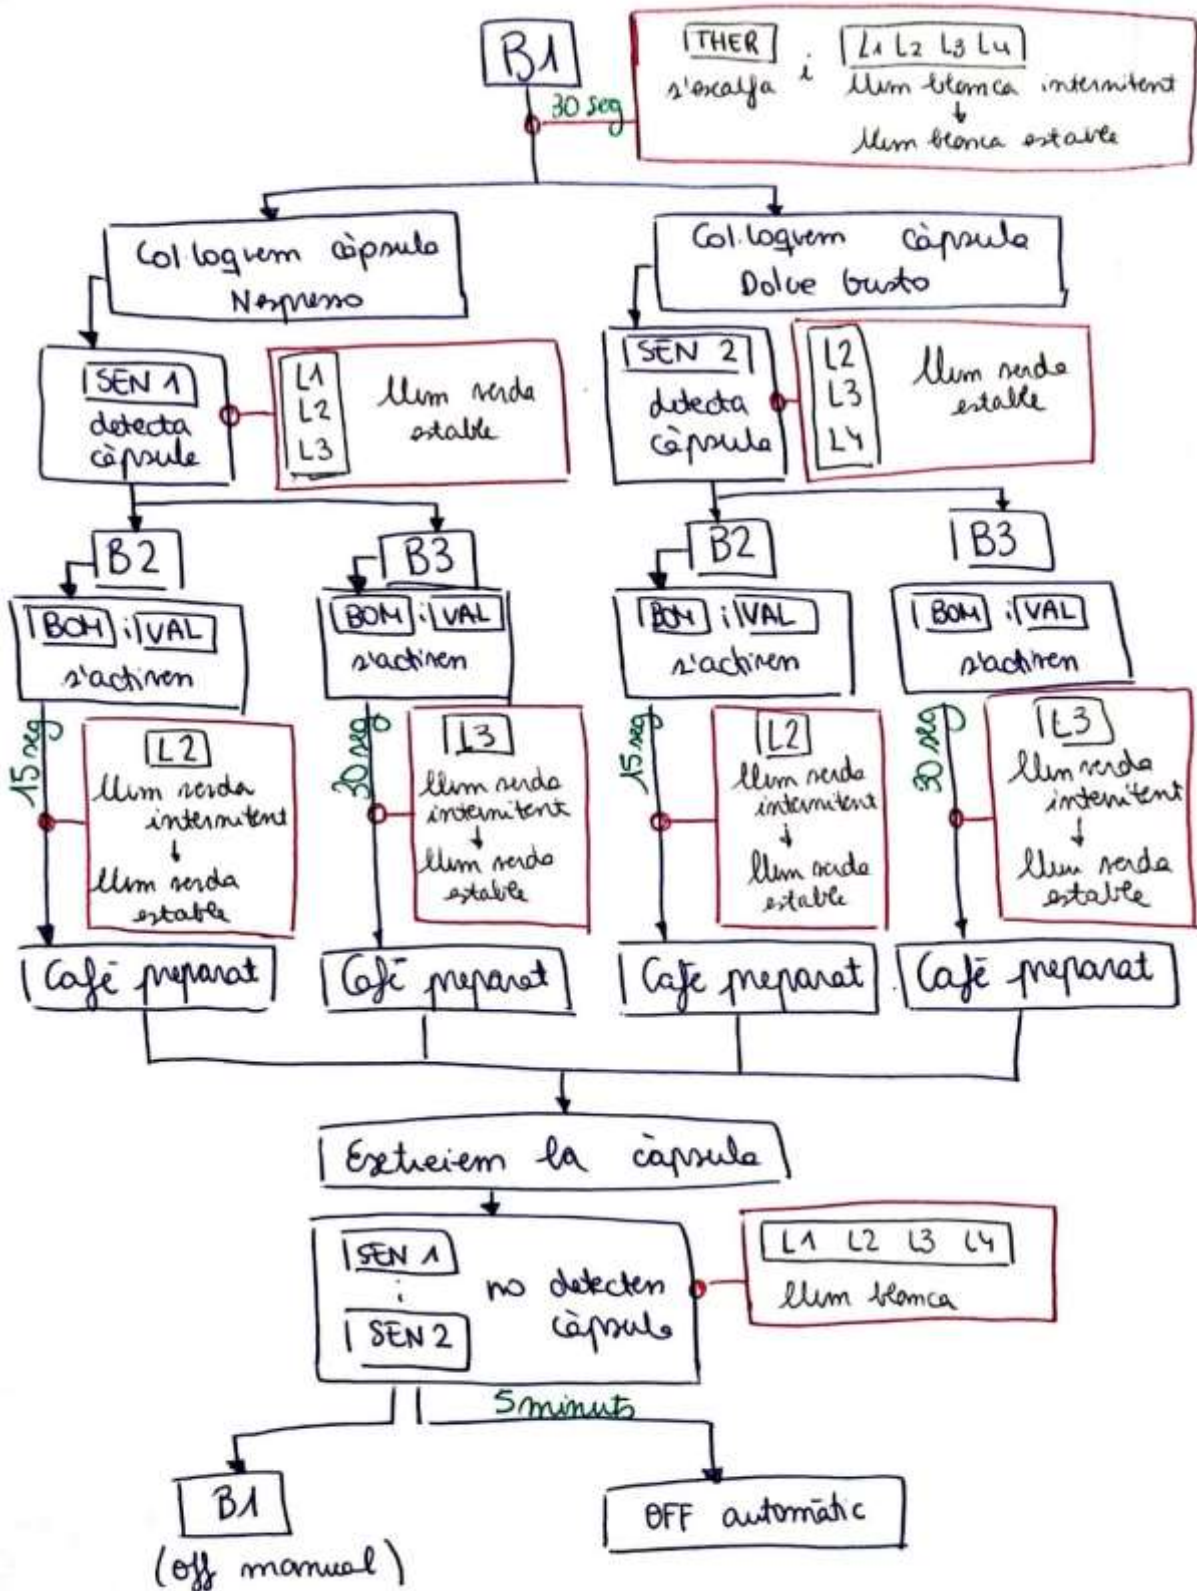 B1
30 seg
THER i L1 L2 L3 L4
s'escalfa llum blanca intermitent
llum blanca estable
Col·loquem càpsula
Nespresso
Col·loquem càpsula
Dolce Gusto
SEN 1
detecta
càpsula
L1
L2
L3
llum verda
estable
SEN 2
detecta
càpsula
L2
L3
L4
llum verda
estable
B2
B3
B2
B3
BOM i VAL
s'activen
BOM i VAL
s'activen
BOM i VAL
s'activen
BOM i VAL
s'activen
15 seg
L2
llum verda
intermitent
llum verda
estable
30 seg
L3
llum verda
intermitent
llum verda
estable
15 seg
L2
llum verda
intermitent
llum verda
estable
30 seg
L3
llum verda
intermitent
llum verda
estable
Cafè preparat
Cafè preparat
Cafè preparat
Cafè preparat
Extreiem la càpsula
SEN 1
i
SEN 2
no detecten
càpsula
L1 L2 L3 L4
llum blanca
5 minuts
B1
(off manual)
OFF automàtic